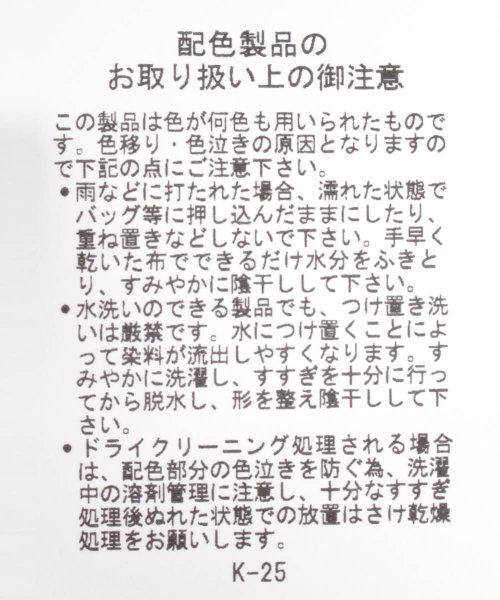 配色製品の
お取り扱い上の御注意
この製品は色が何色も用いられたもので
す。色移り・色泣きの原因となりますの
で下記の点にご注意下さい。
●雨などに打たれた場合、濡れた状態で
バッグ等に押し込んだままにしたり、
重ね置きなどしないで下さい。手早く
乾いた布でできるだけ水分をふきと
り、すみやかに陰干しして下さい。
●水洗いのできる製品でも、つけ置き洗
いは厳禁です。水につけ置くことによ
って染料が流出しやすくなります。す
みやかに洗濯し、すすぎを十分に行っ
てから脱水し、形を整え陰干しして下
さい。
●ドライクリーニング処理される場合
は、配色部分の色泣きを防ぐ為、洗濯
中の溶剤管理に注意し、十分なすすぎ
処理後ぬれた状態での放置はさけ乾燥
処理をお願いします。
K-25